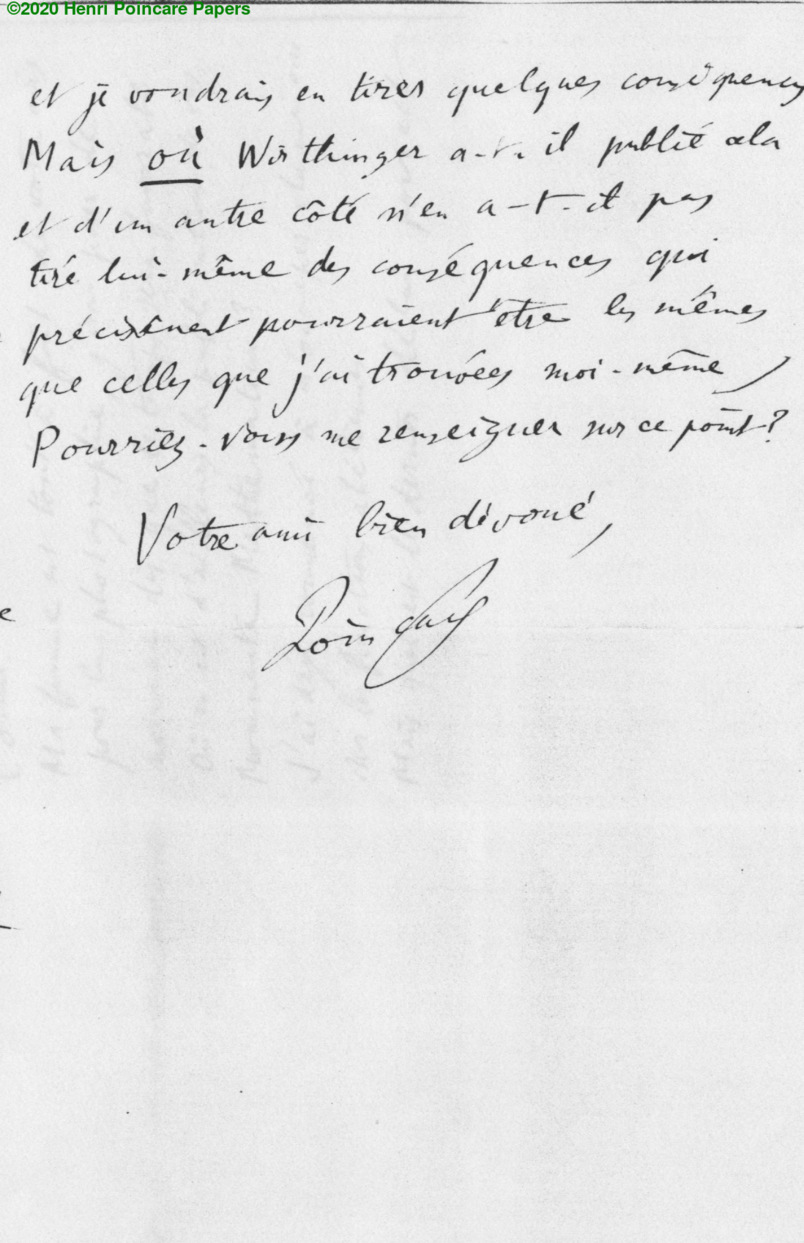 ©2020 Henri Poincare Papers
et je voudrais en tirer quelques conséquences
Mais où Wirthinger a-t-il publié cela
et d'un autre côté n'en a-t-il pas
tiré lui-même des conséquences qui
précisément pourraient être les mêmes
que celles que j'ai trouvées moi-même,
Pourriez-vous me renseigner sur ce point?
Votre ami bien dévoué,
Poincaré